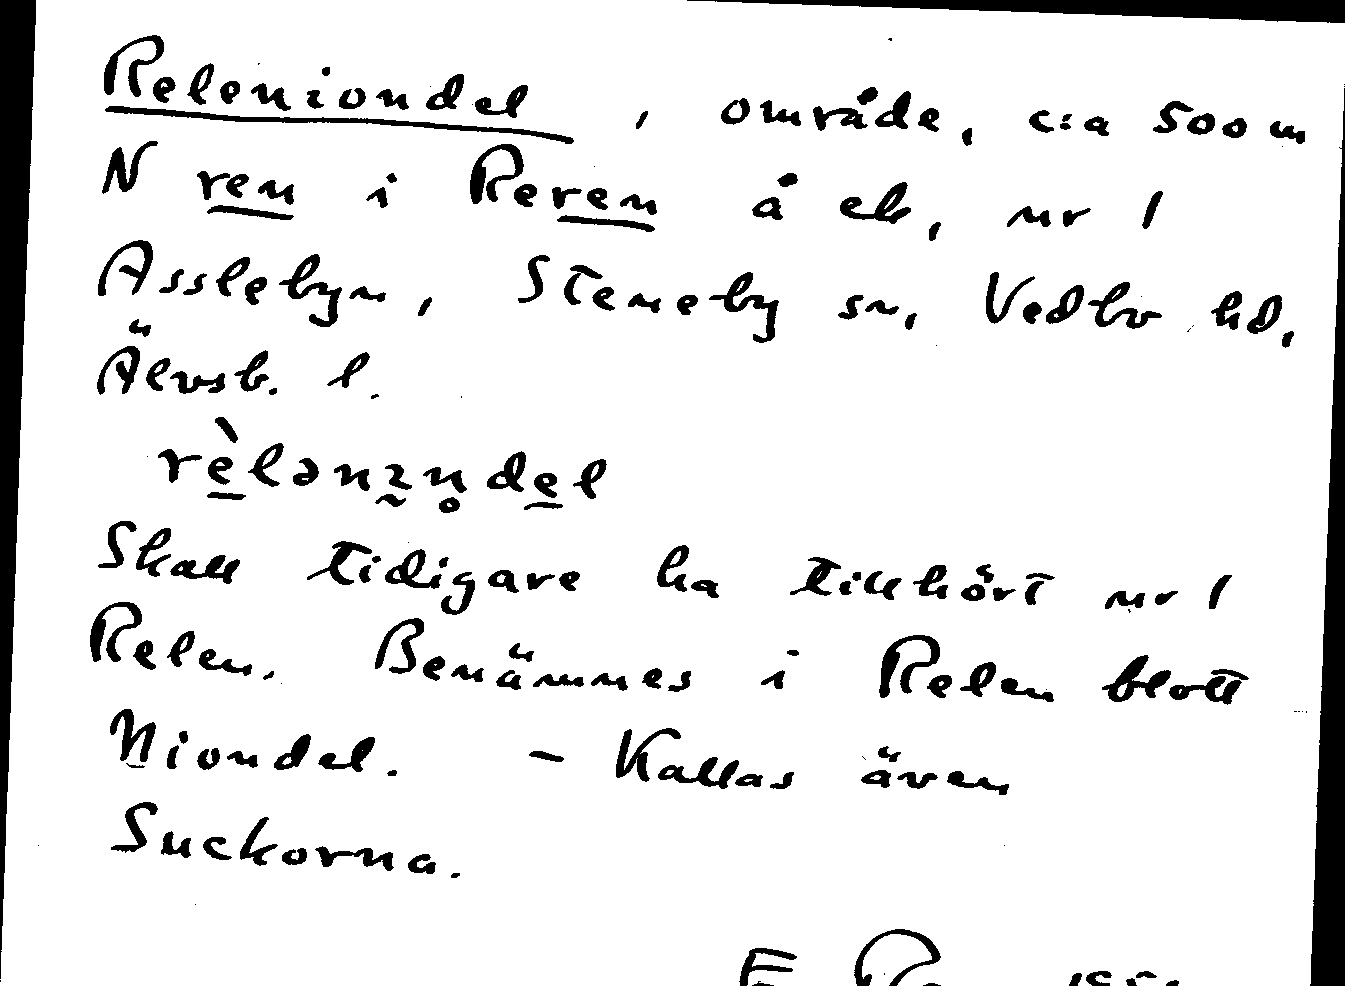 Releniondel, område, c:a 500 m
N ren i Reren å ek, nr 1
Asslebyn, Steneby sn, Vedbo hd,
Älvsb. l.
Skall tidigare ha tillhört nr 1
Relen. Benämnes i Relen blott
Niondel. - Kallas även
Suckorna.